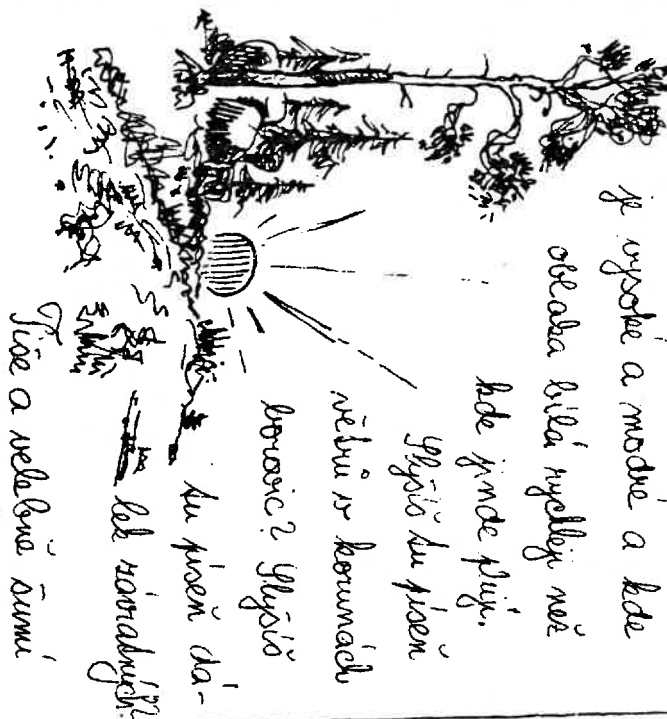 je vysoké a modré a kde
oblaka bílá rychleji než
kde jinde plují.
Slyšíš tu píseň
větrů v korunách
borovic? Slyšíš
tu píseň dá-
lek závratných?
Tiše a velebně šumí